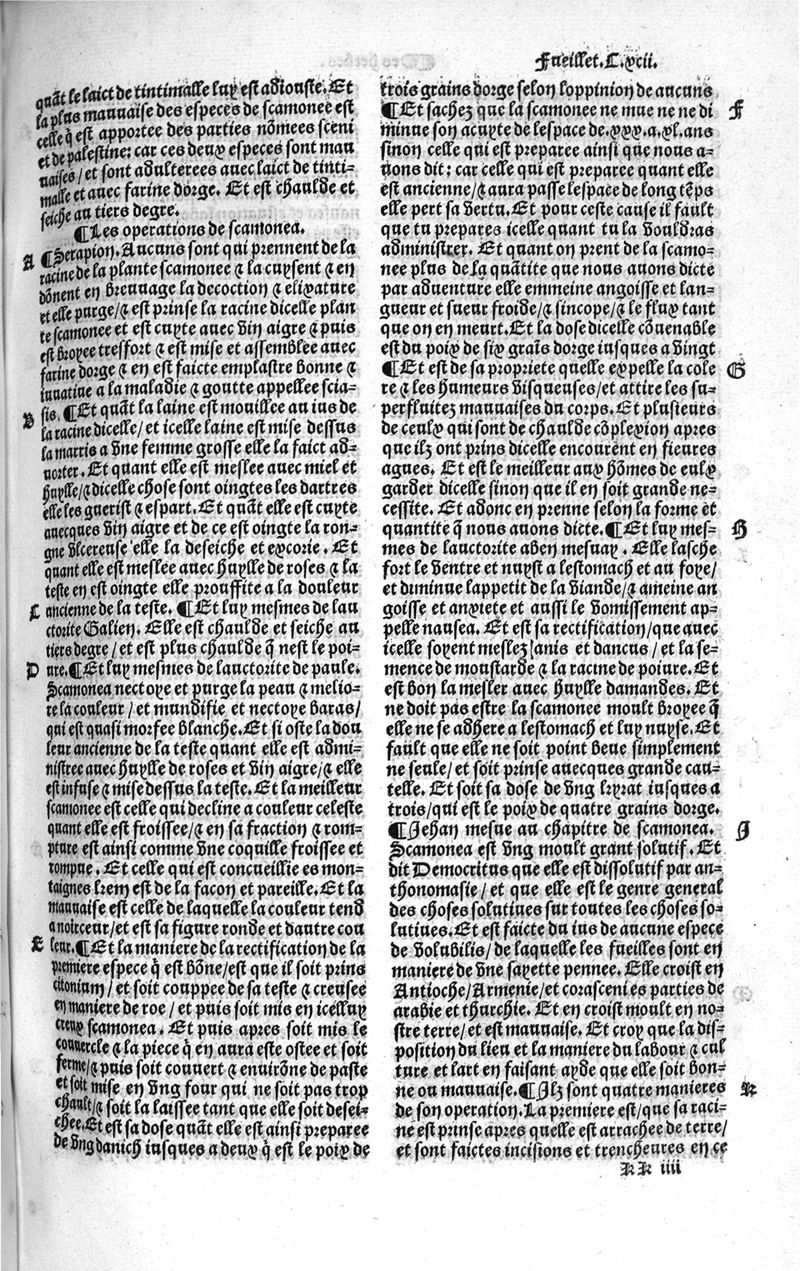 Fueillet.C.xcii.
quãt le laict de tintimalle luy est adiouste. Et
la plus mauuaise des especes de scamonee est
celle q̃ est apportee des parties nõmees sceni
et de palestine: car ces deux especes sont mau
uaises/et sont adulterees auec laict de tinti-
malle et auec farine dorge. Et est chaulde et
seiche au tiers degre.
¶Les operations de scamonea.
A
¶Serapion. Aucuns sont qui prennent de la
racine de la plante scamonee ⁊ la cuysent ⁊ en
dõnent en breuuage la decoction ⁊ elixature
et elle purge/⁊ est prinse la racine dicelle plan
te scamonee et est cuyte auec vin aigre ⁊ puis
est broyee tresfort ⁊ est mise et assemblee auec
farine dorge ⁊ en est faicte emplastre bonne ⁊
iuuatiue a la maladie ⁊ goutte appellee scia-
B
sis. ¶Et quãt la laine est mouillee au ius de
la racine dicelle/et icelle laine est mise dessus
la marris a vne femme grosse elle la faict ad-
uorter. Et quant elle est meslee auec miel et
huylle/⁊ dicelle chose sont oingtes les dartres
elle les guerist ⁊ espart. Et quãt elle est cuyte
auecques vin aigre et de ce est oingte la ron-
gne vlcereuse elle la deseiche et excorie. Et
quant elle est meslee auec huylle de roses ⁊ la
teste en est oingte elle prouffite a la douleur
C
ancienne de la teste. ¶Et luy mesmes de lau
ctorite Galien. Elle est chaulde et seiche au
tiers degre/et est plus chaulde q̃ nest le poi-
D
ure. ¶Et luy mesmes de lauctorite de paule.
Scamonea nectoye et purge la peau ⁊ melio-
re la couleur/et mundifie et nectoye baras/
qui est quasi morfee blanche. Et si oste la dou
leur ancienne de la teste quant elle est admi-
nistree auec huylle de roses et vin aigre/⁊ elle
est infuse ⁊ mise dessus la teste. Et la meilleur
scamonee est celle qui decline a couleur celeste
quant elle est froissee/⁊ en sa fraction ⁊ rom-
pture est ainsi comme vne coquille froissee et
rompue. Et celle qui est concueillie es mon-
taignes lxem est de la facon et pareille. Et la
mauuaise est celle de laquelle la couleur tend
a noirceur/et est sa figure ronde et dautre cou
E
leur. ¶Et la maniere de la rectification de la
premiere espece q̃ est bõne/est que il soit prins
citonium/et soit couppee de sa teste ⁊ creusee
en maniere de roe/et puis soit mis en icelluy
creux scamonea. Et puis apres soit mis le
couuercle ⁊ la piece q̃ en aura este ostee et soit
ferme/⁊ puis soit couuert ⁊ enuirõne de paste
et soit mise en vng four qui ne soit pas trop
chault/⁊ soit la laissee tant que elle soit desei-
chee. Et est sa dose quãt elle est ainsi preparee
de vng danich iusques a deux q̃ est le poix de
trois grains dorge selon loppinion de aucuns
¶Et sachez que la scamonee ne mue ne ne di
F
minue son acuyte de lespace de.xxx.a.xl.ans
sinon celle qui est preparee ainsi que nous a-
uons dit: car celle qui est preparee quant elle
est ancienne/⁊ aura passe lespace de long tẽps
elle pert sa vertu. Et pour ceste cause il fault
que tu prepares icelle quant tu la vouldras
administrer. Et quant on prent de la scamo-
nee plus de la quãtite que nous auons dicte
par aduenture elle emmeine angoisse et lan-
gueur et sueur froide/⁊ sincope/⁊ le flux tant
que on en meurt. Et la dose dicelle cõuenable
est du poix de six grais dorge iusques a vingt
¶Et est de sa propriete quelle expelle la cole
G
re ⁊ les humeurs visqueuses/et attire les su-
perfluitez mauuaises du corps. Et plusieurs
de ceulx qui sont de chaulde cõplexion apres
que ilz ont prins dicelle encourent en fieures
agues. Et est le meilleur aux hõmes de eulx
garder dicelle sinon que il en soit grande ne-
cessite. Et adonc en prenne selon la forme et
quantite q̃ nous auons dicte. ¶Et luy mes-
H
mes de lauctorite aben mesuay. Elle lasche
fort le ventre et nuyst a lestomach et au foye/
et diminue lappetit de la viande/⁊ ameine an
goisse et anxiete et aussi le vomissement ap-
pelle nausea. Et est sa rectification/que auec
icelle soyent meslez anis et daucus/et la se-
mence de moustarde ⁊ la racine de poiure. Et
est bon la mesler auec huylle damandes. Et
ne doit pas estre la scamonee moult broyee q̃
elle ne se adhere a lestomach et luy nuyse. Et
fault que elle ne soit point beue simplement
ne seule/et soit prinse auecques grande cau-
telle. Et soit sa dose de vng kyrat iusques a
trois/qui est le poix de quatre grains dorge.
¶Jehan mesue au chapitre de scamonea.
J
Scamonea est vng moult grant solutif. Et
dit Democritus que elle est dissolutif par an-
thonomasie/et que elle est le genre general
des choses solutiues sur toutes les choses so-
lutiues. Et est faicte du ius de aucune espece
de volubilis/de laquelle les fueilles sont en
maniere de vne sayette pennee. Elle croist en
Antioche/Armenie/et corasceni es parties de
arabie et thurchie. Et en croist moult en no-
stre terre/et est mauuaise. Et croy que la dis-
position du lieu et la maniere du labour ⁊ cul
ture et lart en faisant ayde que elle soit bon-
ne ou mauuaise. ¶Ilz sont quatre manieres
K
de son operation. La premiere est/que sa raci-
ne est prinse apres quelle est arrachee de terre/
et sont faictes incisions et trencheures en ce
KK iiii